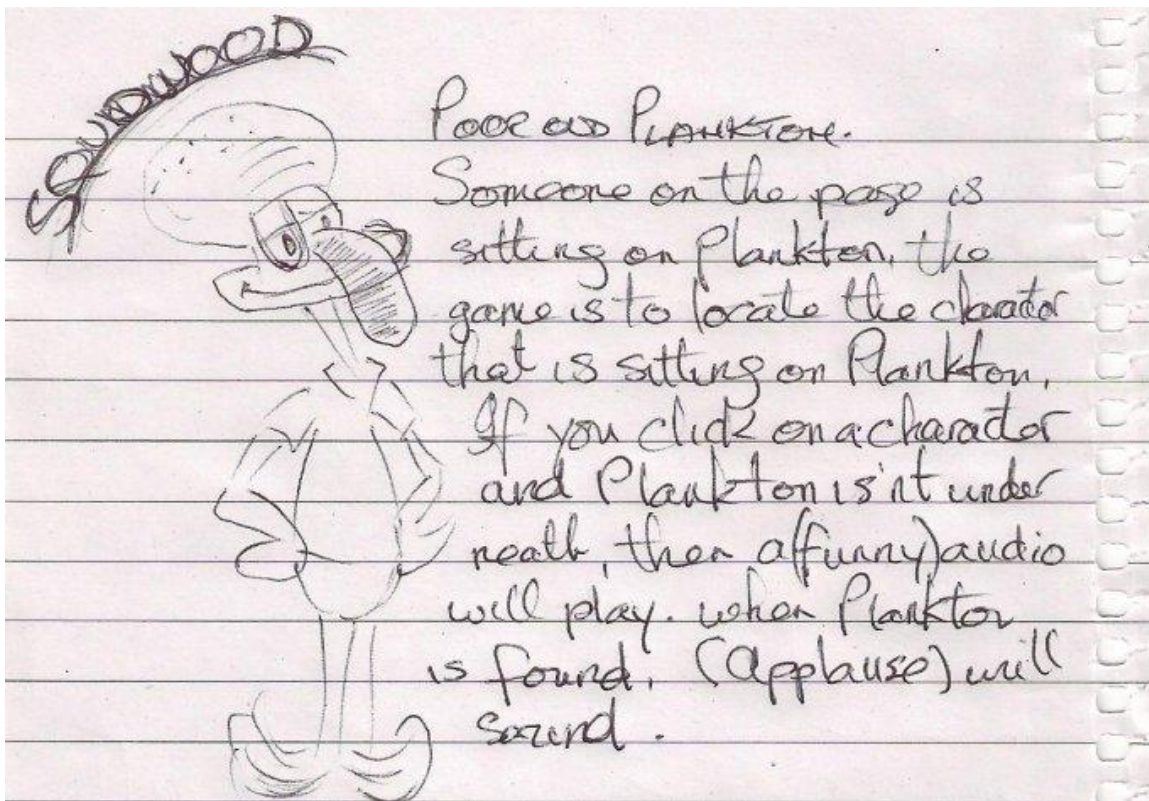 SQUIDWOOD
POOR OLD PLANKTON.
Someone on the page is
sitting on Plankton, the
game is to locate the charactor
that is sitting on Plankton.
If you click on a charactor
and Plankton is'nt under
neath, then a (funny) audio
will play. when Plankton
is found, (applause) will
sound.